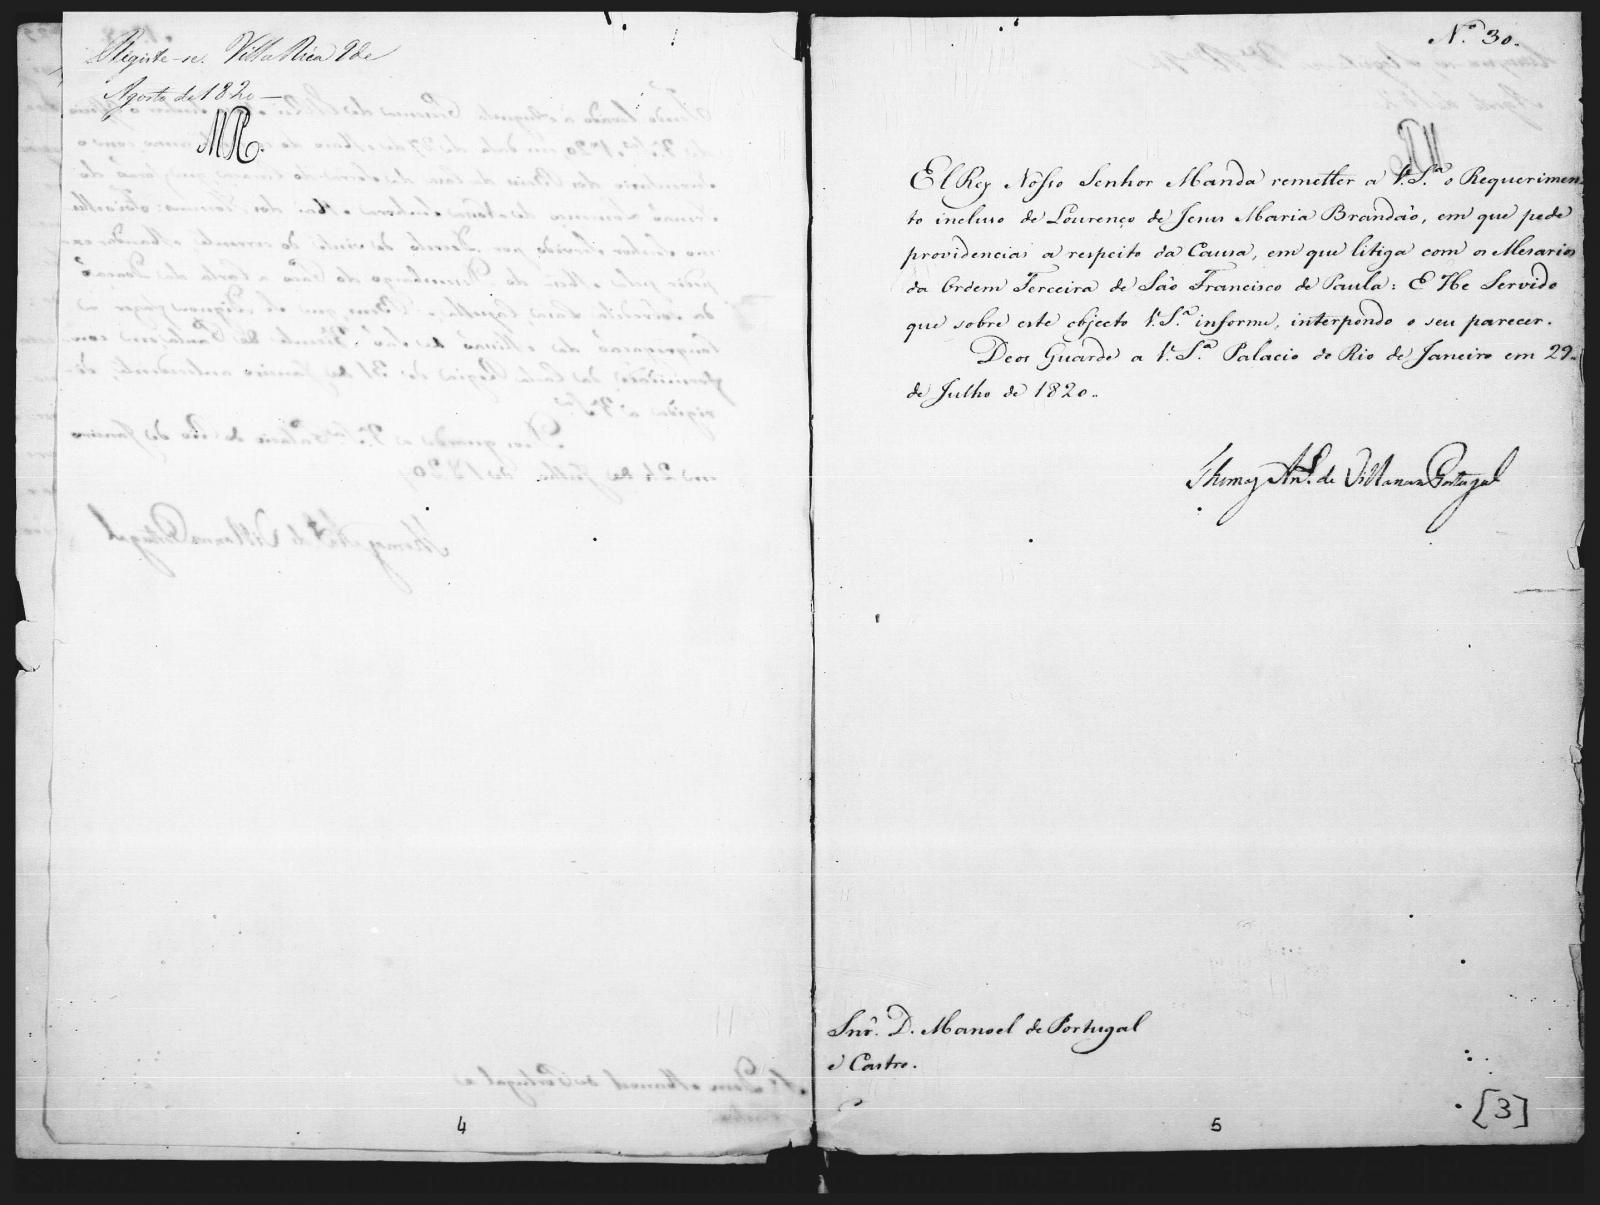 Registe-se. Villa Rica 9 de
Agosto de 1820 —
Nº 30.
El Rey Nosso Senhor Manda remetter a V. S.ª o Requerimen-
to incluso de Lourenço de Jesus Maria Brandão, em que pede
providencias a respeito da Causa, em que litiga com os Mesarios
da Ordem Terceira de São Francisco de Paula: E He Servido
que sobre este objecto V. S.ª informe, interpondo o seu parecer.
Deos Guarde a V. S.ª Palacio do Rio de Janeiro em 29.
de Julho de 1820.
Thomaz Ant.º de Villanova Portugal
Snr. D. Manoel de Portugal
e Castro.
4
5
[3]